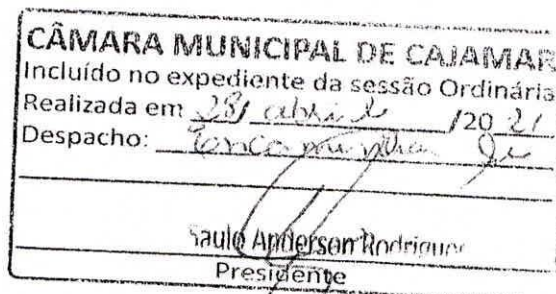 CÂMARA MUNICIPAL DE CAJAMAR
Incluído no expediente da sessão Ordinária
Realizada em 28/ abril /20 21
Despacho: Encaminha se
Saulo Anderson Rodrigues
Presidente